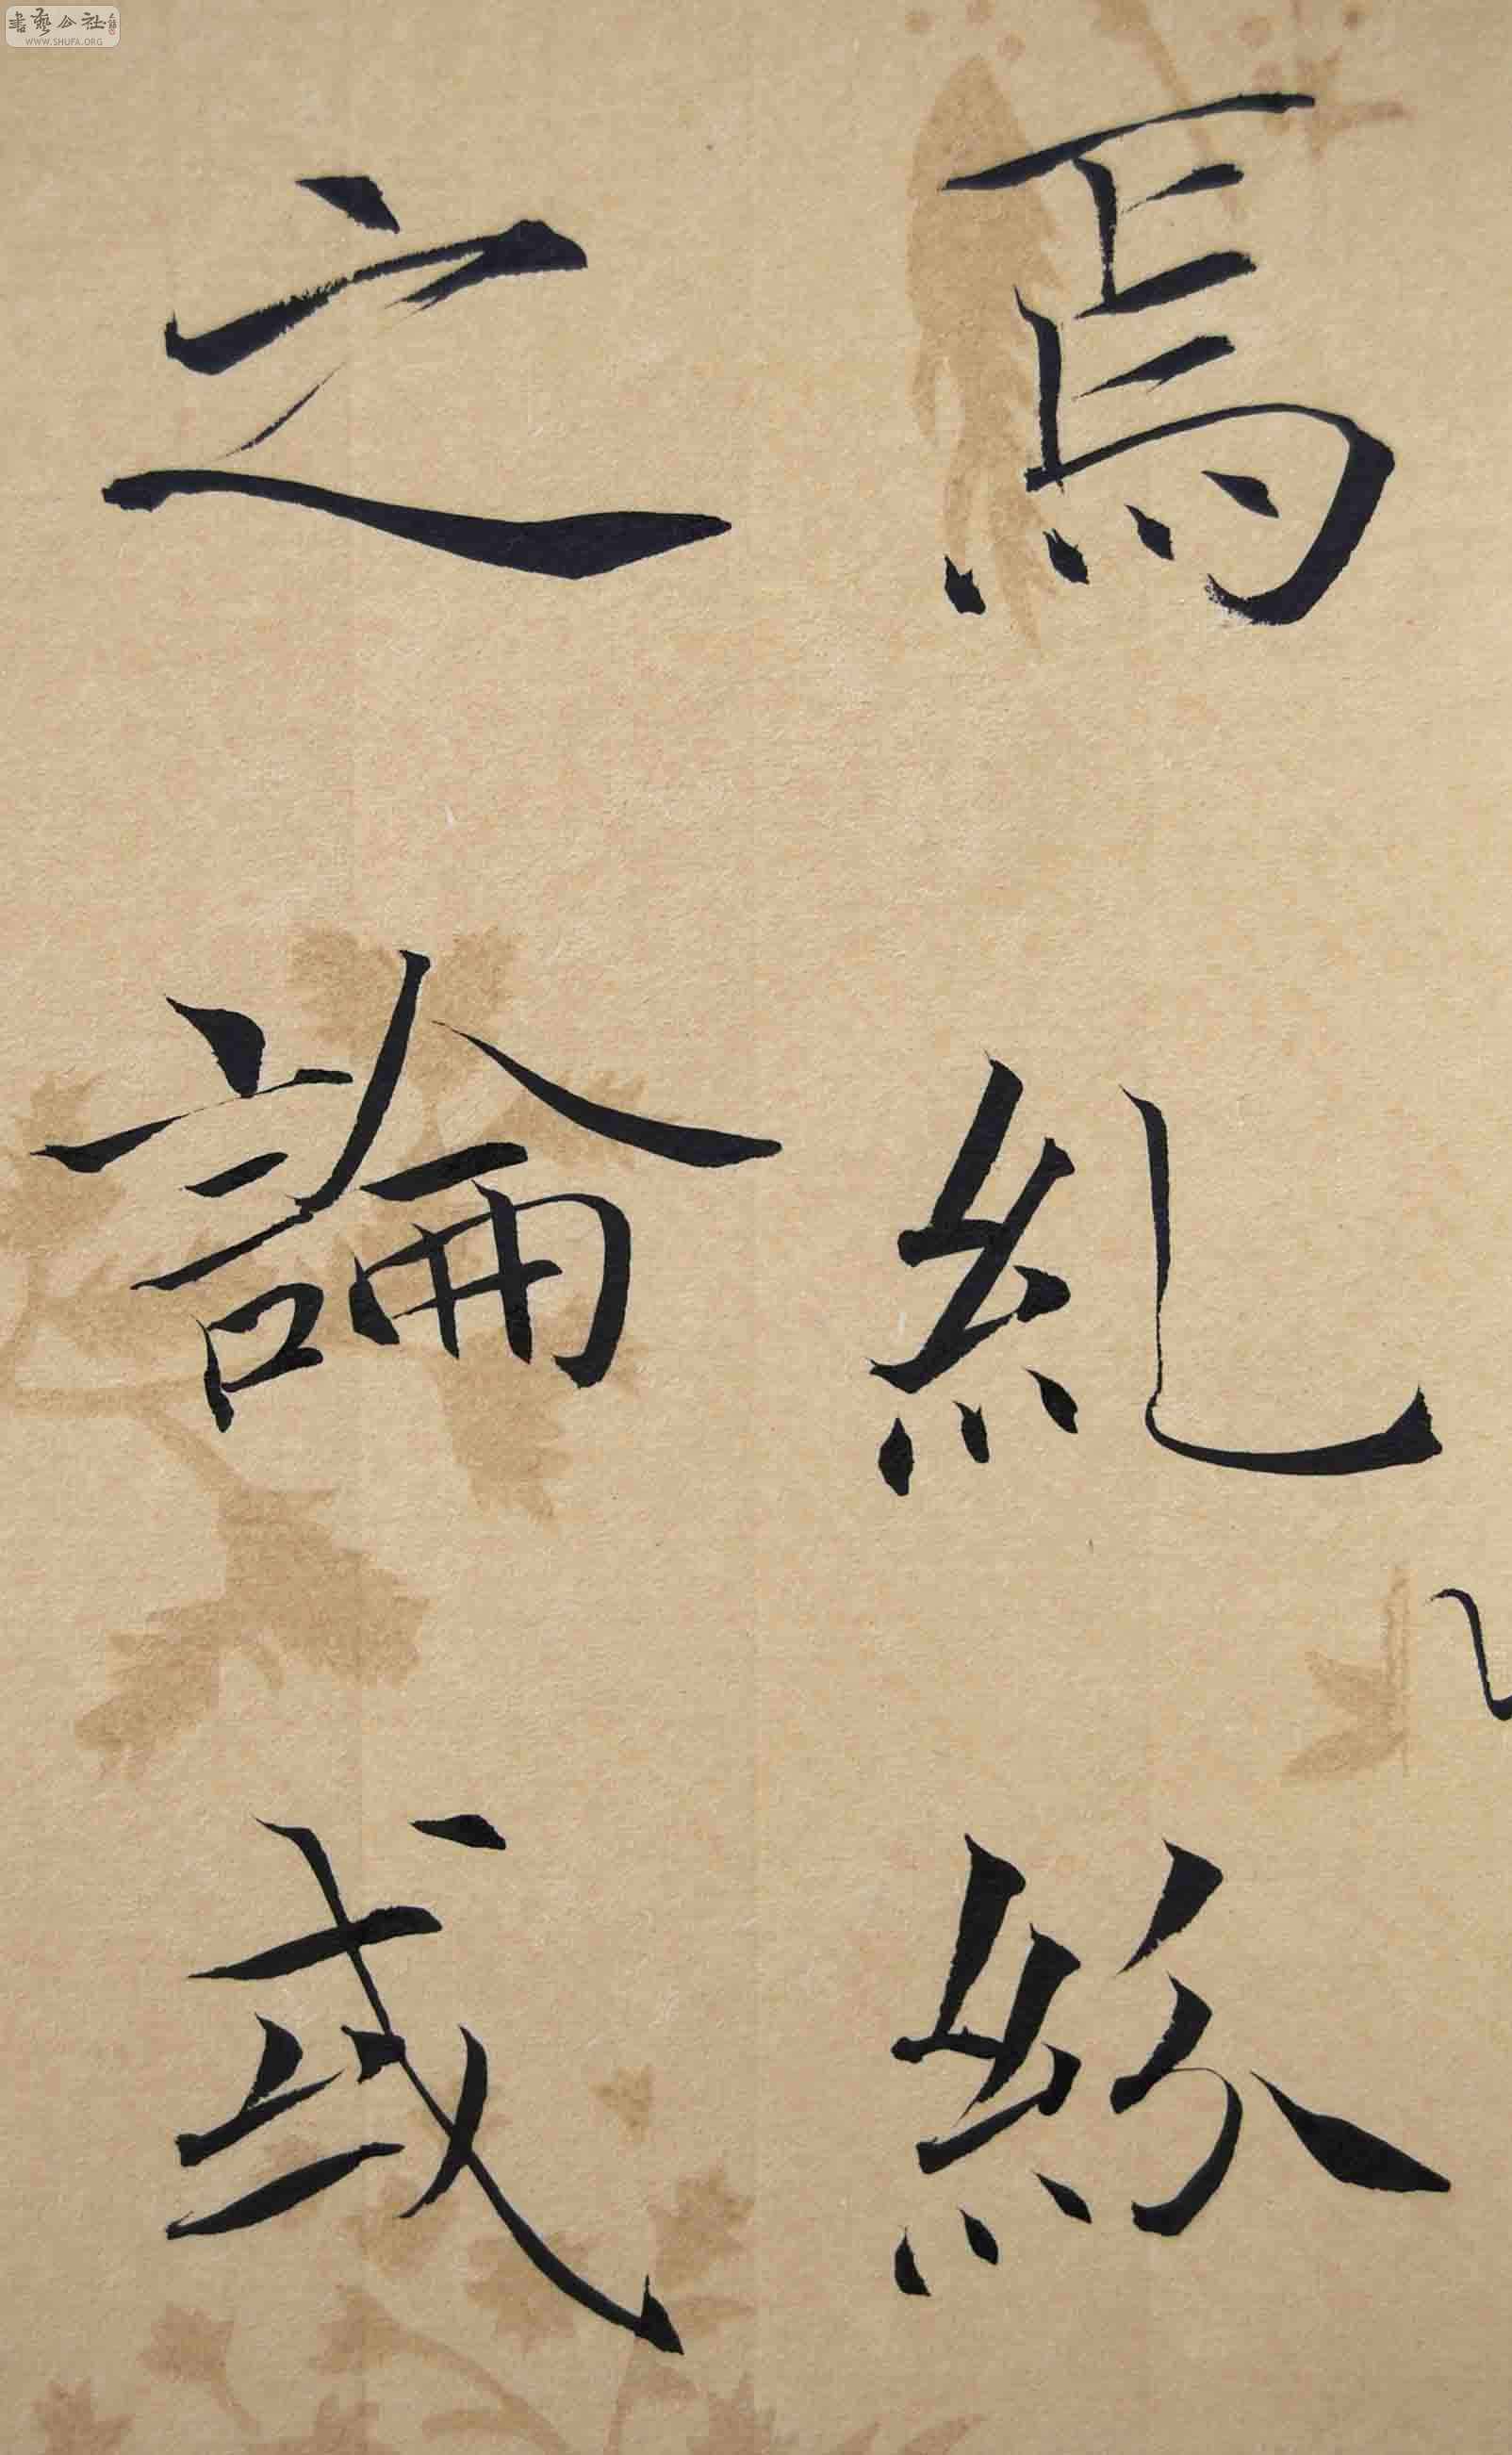 焉糺紛
之論或
書藝公社
WWW.SHUFA.ORG